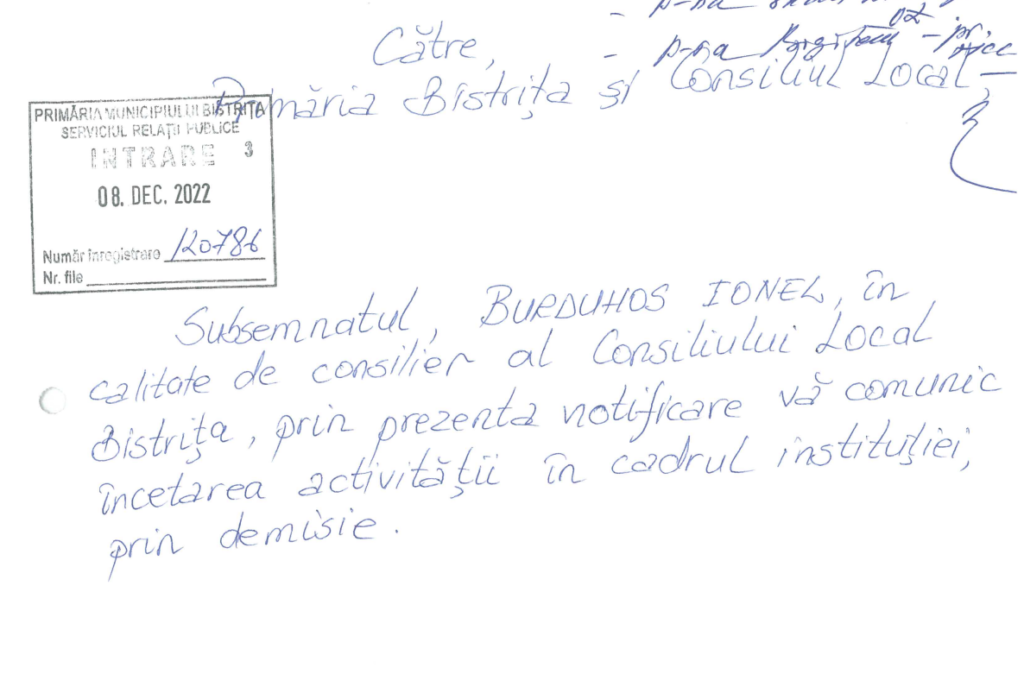 Către,
Primăria Bistrița și Consiliul Local
PRIMĂRIA MUNICIPIULUI BISTRIȚA
SERVICIUL RELAȚII PUBLICE
INTRARE 3
08. DEC. 2022
Număr înregistrare 120786
Nr. file
Subsemnatul, BURDUHOS IONEL, în
calitate de consilier al Consiliului Local
Bistrița, prin prezenta notificare vă comunic
încetarea activității în cadrul instituției,
prin demisie.